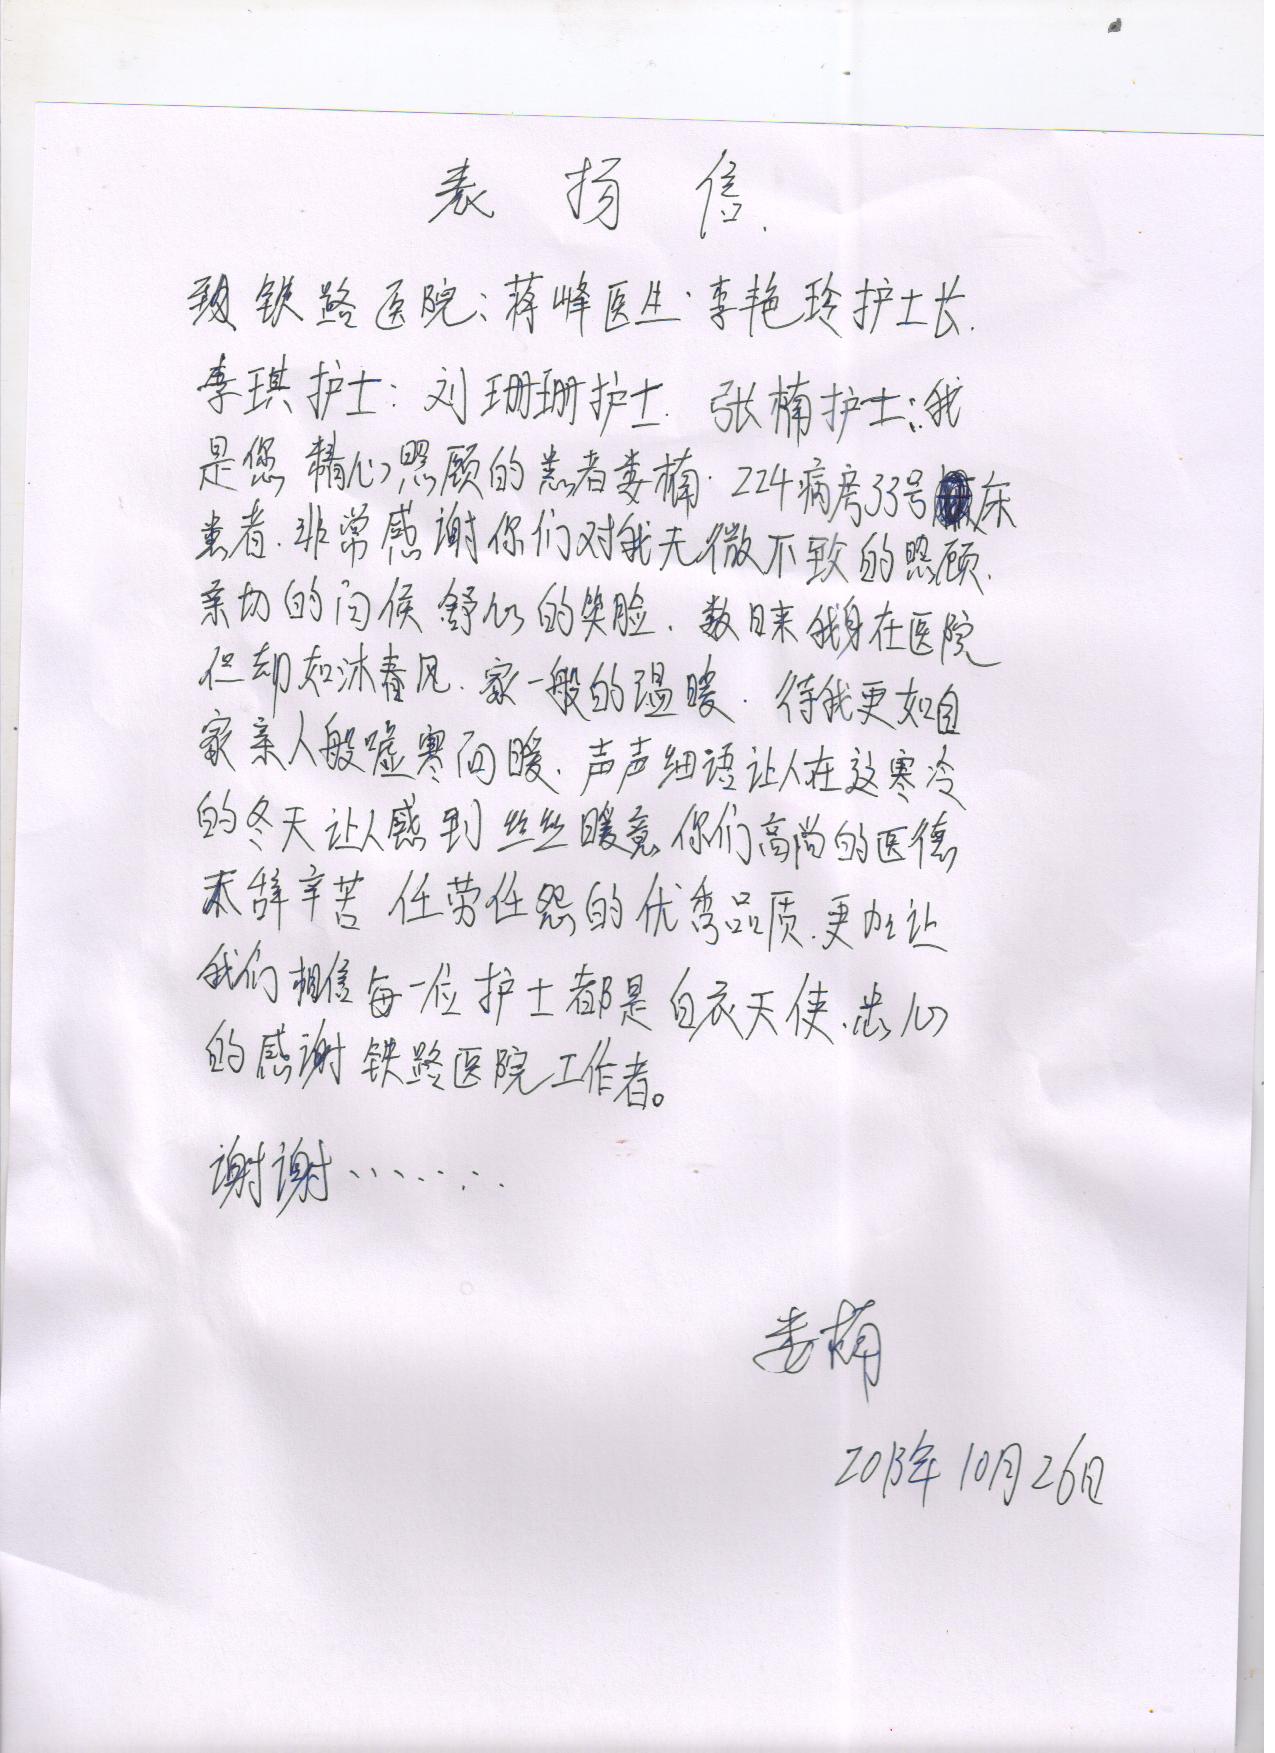 表扬信.
致铁路医院:蒋峰医生.李艳玲护士长.
李琪护士:刘珊珊护士.张楠护士:我
是您精心照顾的患者娄楠.224病房33号床
患者.非常感谢你们对我无微不致的照顾.
亲切的问候舒心的笑脸.数日来我身在医院
但却如沐春风.家一般的温暖.待我更如自
家亲人般嘘寒问暖.声声细语让人在这寒冷
的冬天让人感到丝丝暖意你们高尚的医德
不辞辛苦任劳任怨的优秀品质.更加让
我们相信每一位护士都是白衣天使.忠心
的感谢铁路医院工作者。
谢谢……
娄楠
2013年10月26日